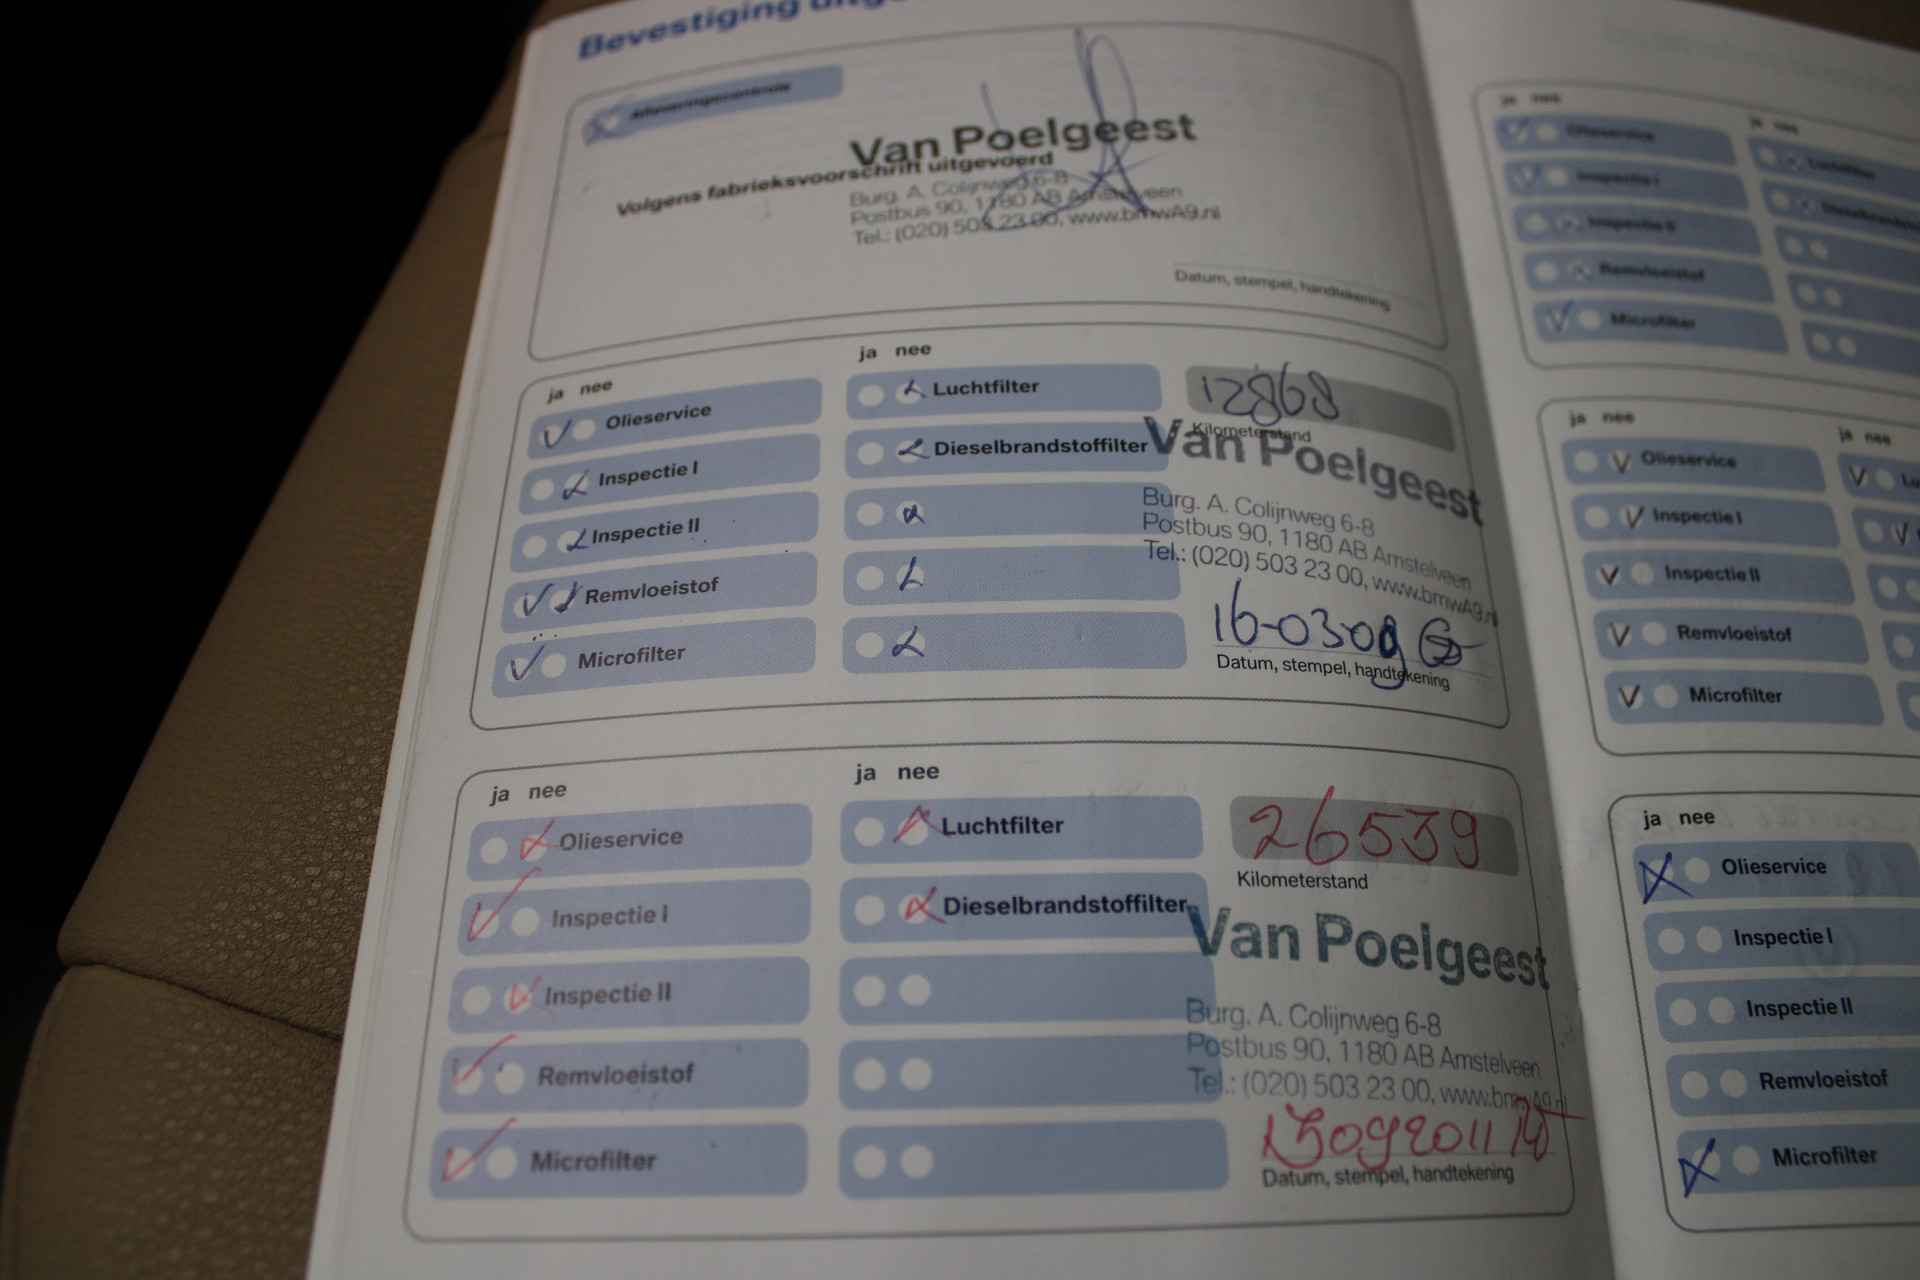 Bevestiging
Afleveringscontrole
Van Poelgeest
Volgens fabrieksvoorschrift uitgevoerd
Burg. A. Colijnweg 6-8
Postbus 90, 1180 AB Amstelveen
Tel.: (020) 503 23 00, www.bmwA9.nl
Datum, stempel, handtekening
ja nee
ja nee
Olieservice
Inspectie I
Inspectie II
Remvloeistof
Microfilter
Luchtfilter
Dieselbrandstoffilter
12868
Kilometerstand
Van Poelgeest
Burg. A. Colijnweg 6-8
Postbus 90, 1180 AB Amstelveen
Tel.: (020) 503 23 00, www.bmwA9.nl
16-03-09
Datum, stempel, handtekening
ja nee
ja nee
Olieservice
Inspectie I
Inspectie II
Remvloeistof
Microfilter
Luchtfilter
Dieselbrandstoffilter
26539
Kilometerstand
Van Poelgeest
Burg. A. Colijnweg 6-8
Postbus 90, 1180 AB Amstelveen
Tel.: (020) 503 23 00, www.bmwA9.nl
Datum, stempel, handtekening
ja nee
ja nee
Olieservice
Inspectie I
Inspectie II
Remvloeistof
Microfilter
Luchtfilter
ja nee
ja nee
Olieservice
Inspectie I
Inspectie II
Remvloeistof
Microfilter
ja nee
Olieservice
Inspectie I
Inspectie II
Remvloeistof
Microfilter